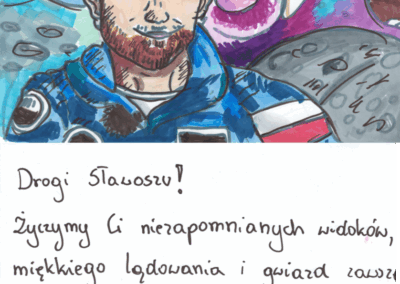 Drogi Sławoszu!
Życzymy Ci niezapomnianych widoków,
miękkiego lądowania i gwiazd zawsze